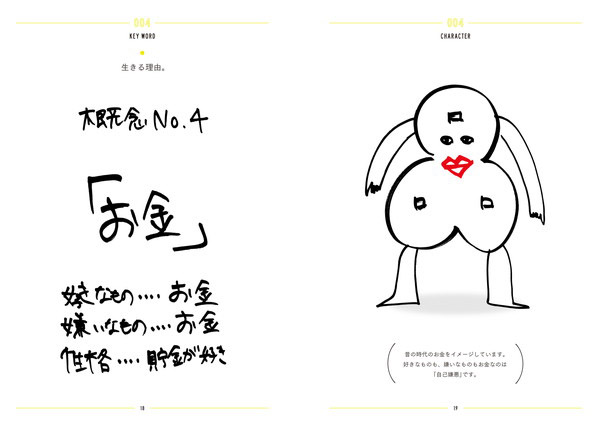 004
KEY WORD
生きる理由。
概念 No.4
「お金」
好きなもの‥‥お金
嫌いなもの‥‥お金
性格‥‥貯金が好き
18
004
CHARACTER
昔の時代のお金をイメージしています。
好きなものも、嫌いなものもお金なのは
「自己嫌悪」です。
19